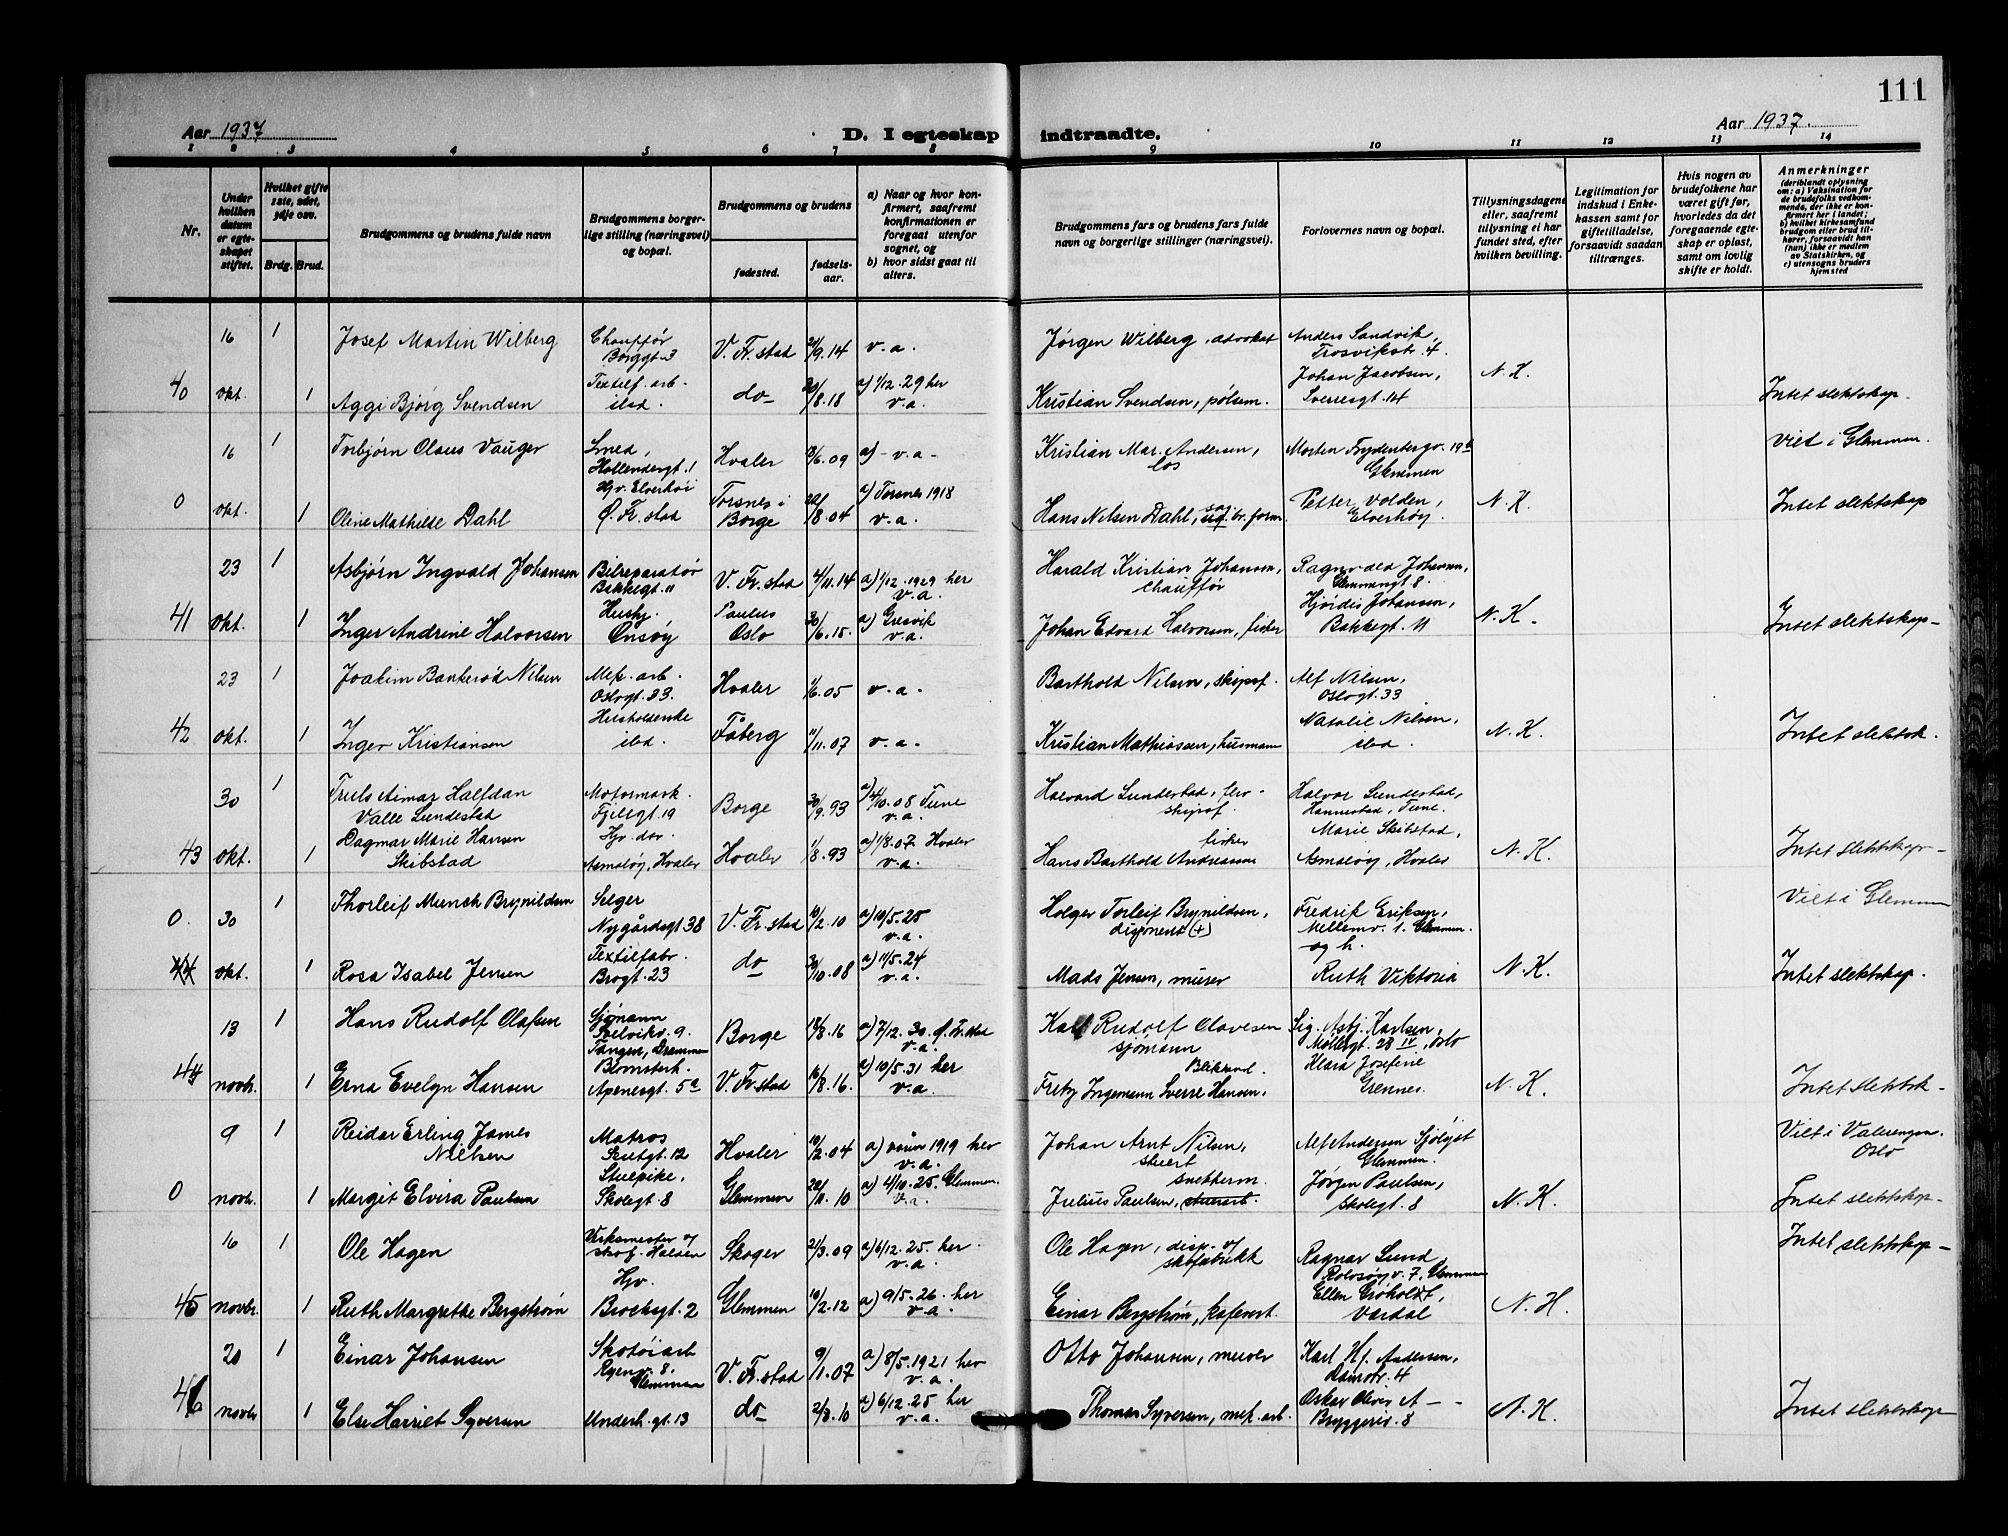 111
Aar 1937
D. I egteskap indtraadte.
Aar 1937.
1 2 3 4 5 6 7 8 9 10 11 12 13 14
Nr.
Under hvilken datum er egteskapet stiftet.
Hvilket gifte 1ste, 2det, 3dje osv.
Brdg. Brud.
Brudgommens og brudens fulde navn
Brudgommens borgerlige stilling (næringsvei) og bopæl.
Brudgommens og brudens
fødested.
fødselsaar.
a) Naar og hvor konfirmert, saafremt konfirmationen er foregaat utenfor sognet, og
b) hvor sidst gaat til alters.
Brudgommens fars og brudens fars fulde navn og borgerlige stillinger (næringsvei).
Forlovernes navn og bopæl.
Tillysningsdagene eller, saafremt tillysning ei har fundet sted, efter hvilken bevilling.
Legitimation for indskud i Enkekassen samt for giftetilladelse, forsaavidt saadan tiltrænges.
Hvis nogen av brudefolkene har været gift før, hvorledes da det foregaaende egteskap er opløst, samt om lovlig skifte er holdt.
Anmerkninger
(deriblandt oplysning om: a) Vaksination for de brudefolks vedkommende, der ikke er konfirmert her i landet; b) hvilket kirkesamfund brudgom eller brud tilhører, forsaavidt han (hun) ikke er medlem av Statskirken, og c) utensogns bruders hjemsted
16 1 Josef Martin Wilberg Chauffør Borggt. 3 V. Fr.stad 21/9.14 v.a. Jørgen Wilberg, advokat Anders Sandvik, Trosvikstr. 4.
40 okt. 1 Aggi Bjørg Svendsen Textilf. arb. ibd. do 20/8.18 a) 1/12.29 her v.a. Kristian Svendsen, pølsem. Johan Jacobsen, Sverresgt. 14 N.K. Intet slektskap.
16 1 Torbjørn Claus Vauger Smed, Hollendergt. 1 Hvaler 13/6.09 a) - v.a - Kristian Mar. Andersen, los Morten Frydenbergv. 19b Glemmen viet i Glemmen.
0 okt. 1 Oline Mathilde Dahl Hjv. Elverhøi Ø. Fr.stad Torsnes i Borge 22/8.04 a) Torsnes 1918 v.a. Hans Nilsen Dahl, br. form. Petter Volden, Elverhøy. N.K. Intet slektskap
23 1 Asbjørn Ingvald Johansen Bilreparatør Bakkegt. 11 V. Fr.stad 4/11.14 a) 1/12.1929 her v.a. Harald Kristian Johansen, Chauffør Ragnvald Johansen, Glemmengt 8.
41 okt. 1 Inger Andrine Halvorsen Hushj. Onsøy Paulus Oslo 30/6.15. a) Gresvik v.a. Johan Edvard Halvorsen, fisker Hjørdis Johansen, Bakkegt. 11 N.K. Intet slektskap-
23 1 Joakim Bankerød Nilsen Mek. arb. Oslogt. 33. Hvaler 1/6.05 v.a. Barthold Nilsen, skipsf. Alf Nilsen, Oslogt. 33
42 okt. 1 Inger Kristiansen Husholderske ibd. Fåberg 11/11.07 v.a. Kristian Mathiassen, husmann Natalie Nilsen, ibd. N.K. Intet slektsk.
30 1 Truls Aimar Halfdan Valle Lundestad Motormask. Fjelgt. 19 Borge 30/9.93 a) 4/10.08 Tune v.a. Halvard Lundestad, skipsf. Halvor Lundestad, Hannestad, Tune.
43 okt. 1 Dagmar Marie Hansen Skibstad Hjv. dov. Asmaløy, Hvaler Hvaler 1/8.93 a) 1/8.07. Hvaler v.a. Hans Barthold Andreassen fisker Marie Skibstad, Asmaløy, Hvaler N.K. Intet slektskap-
0. 30 1 Thorleif Munch Brynildsen Selger Nygårdsgt 38 V. Fr.stad 10/2.10 a) 10/5.25 v.a. Holger Torleif Brynildsen, disponent (+) Fredrik Eriksen, Mellemv. 1. Glemmen. og h. Viet i Glemmen
44 okt. 1 Rosa Isabel Jensen Textilfabr. Brogt. 23 do 30/10.08 a) 11/5.24 v.a. Mads Jensen, murer Ruth Viktoria N.K. Intet slektskap.
13 1 Hans Rudolf Olafsen Sjømann Solvikv. 9. Tangen, Drammen Borge 18/8.16 a) 7/12.30. Ø. Fr.stad v.a. Karl Rudolf Olavesen sjømann Sig. Asbj. Karlsen, Møllergt. 28 IV, Oslo
44 novb. 1 Erna Evelyn Hansen Blomsterh. Apenesgt. 5a V. Fr.stad 16/8.16. a) 10/5.31 her v.a. Fritz Ingemann Sverre Hansen, Blikksml. Klara Josefine Grennes. N.K. Intet slektsk-
9 1 Reidar Erling James Nielsen Matros Skutgt. 12 Hvaler 10/2.04 a) våren 1919 her v.a. Johan Arnt Nilsen, stuert Alf Andersen Sjølyst Glemmen. Viet i Valerengen. Oslo
0 novb. 1 Margit Elvira Paulsen Stuepike, Skolegt. 8 Glemmen 22/11.10 a) 4/10.25. Glemmen. v.a. Julius Paulsen, snekkerm. Jørgen Paulsen, skolegt. 8 N.K. Intet slektskap-
16 1 Ole Hagen Verksmester v/ skof. Halden Skoger 21/3.09 a) 6/12.25. her. v.a. Ole Hagen, disp. v/ skofabrikk Ragnar Lund, Rolvsøy v. 7, Glemmen Intet slektskap-
45 novb. 1 Ruth Margrethe Bergstrøm Hjv. Brochsgt. 2 Glemmen 10/2.12 a) 9/5.26. her v.a. Einar Bergstrøm, kafevert. Ellen Grøholdt, Vardal N.K.
20 1 Einar Johansen Skotøiarb Ryenv. 8. Glemmen V. Fr.stad 9/1.07 a) 8/5.1921 her v.a. Otto Johansen, murer Karl Hj. Andersen, Damstr. 4
46 novb 1 Else Harriet Syversen Underh.gt. 13 do 2/3.10 a) 6/12.25 her v.a. Thomas Syversen, mek. arb. Oskar Oliv. A - - Bryggeriv. 8 N.K. Intet slektskap